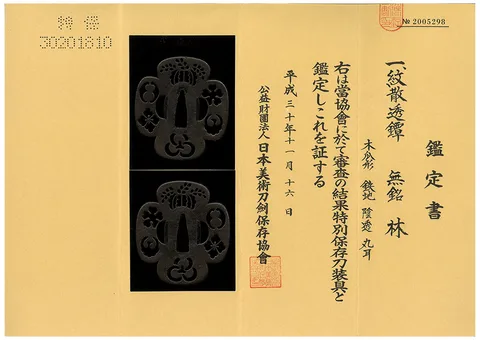 鑑定書
一、紋散透鐔 無銘 林
木瓜形 鉄地 陰透 丸耳
右は當協會に於て審査の結果特別保存刀装具と
鑑定しこれを証する
平成三十年十一月十六日
公益財團法人 日本美術刀劍保存協會
№ 2005298
特保
30201810